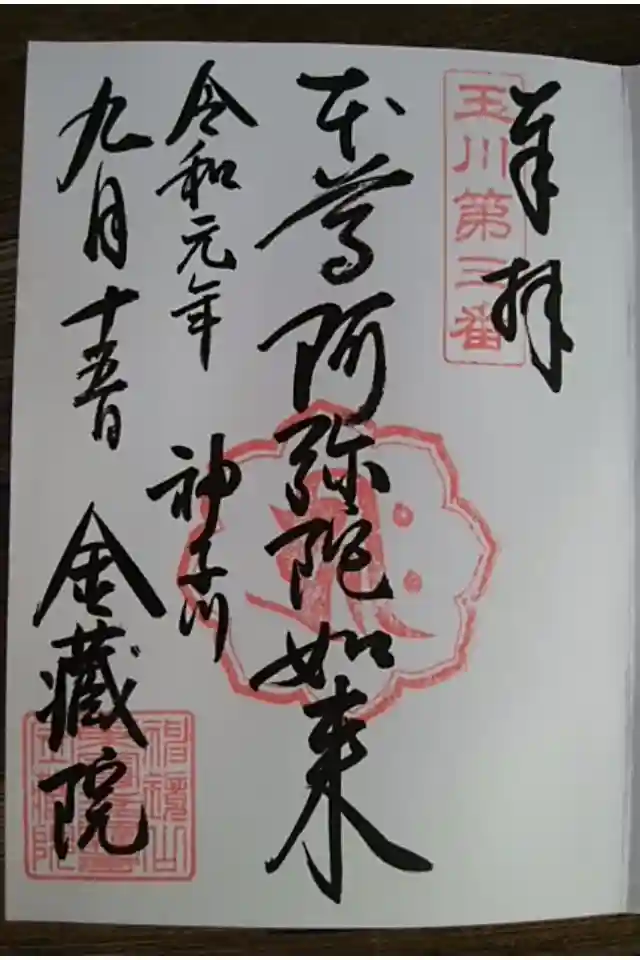 奉拝
玉川第三番
本尊阿弥陀如来
令和元年
神奈川
九月十五日
金蔵院